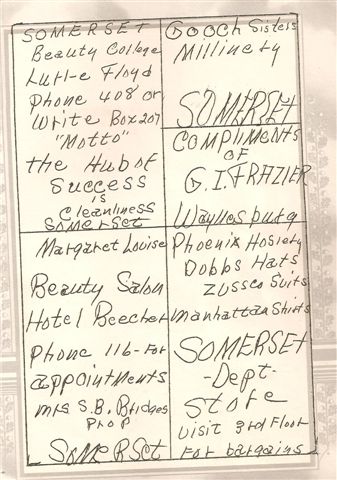 SOMERSET
Beauty College
Lurl-e Floyd
Phone 408 or
Write Box 207
"Motto"
the Hub of
Success
is
Cleanliness
SOMERSET
Gooch Sisters
Millinery
SOMERSET
COMPLIMENTS
OF
G.I. FRAZIER
Waynesburg
Margaret Louise
Beauty Salon
Hotel Beecher
Phone 116-For
appointments
mrs S.B. Bridges
Prop
SOMERSET
Phoenix Hosiery
Dobbs Hats
Zussco Suits
Manhattan Shirts
SOMERSET
-Dept-
Store
Visit 3rd Floor
For bargains